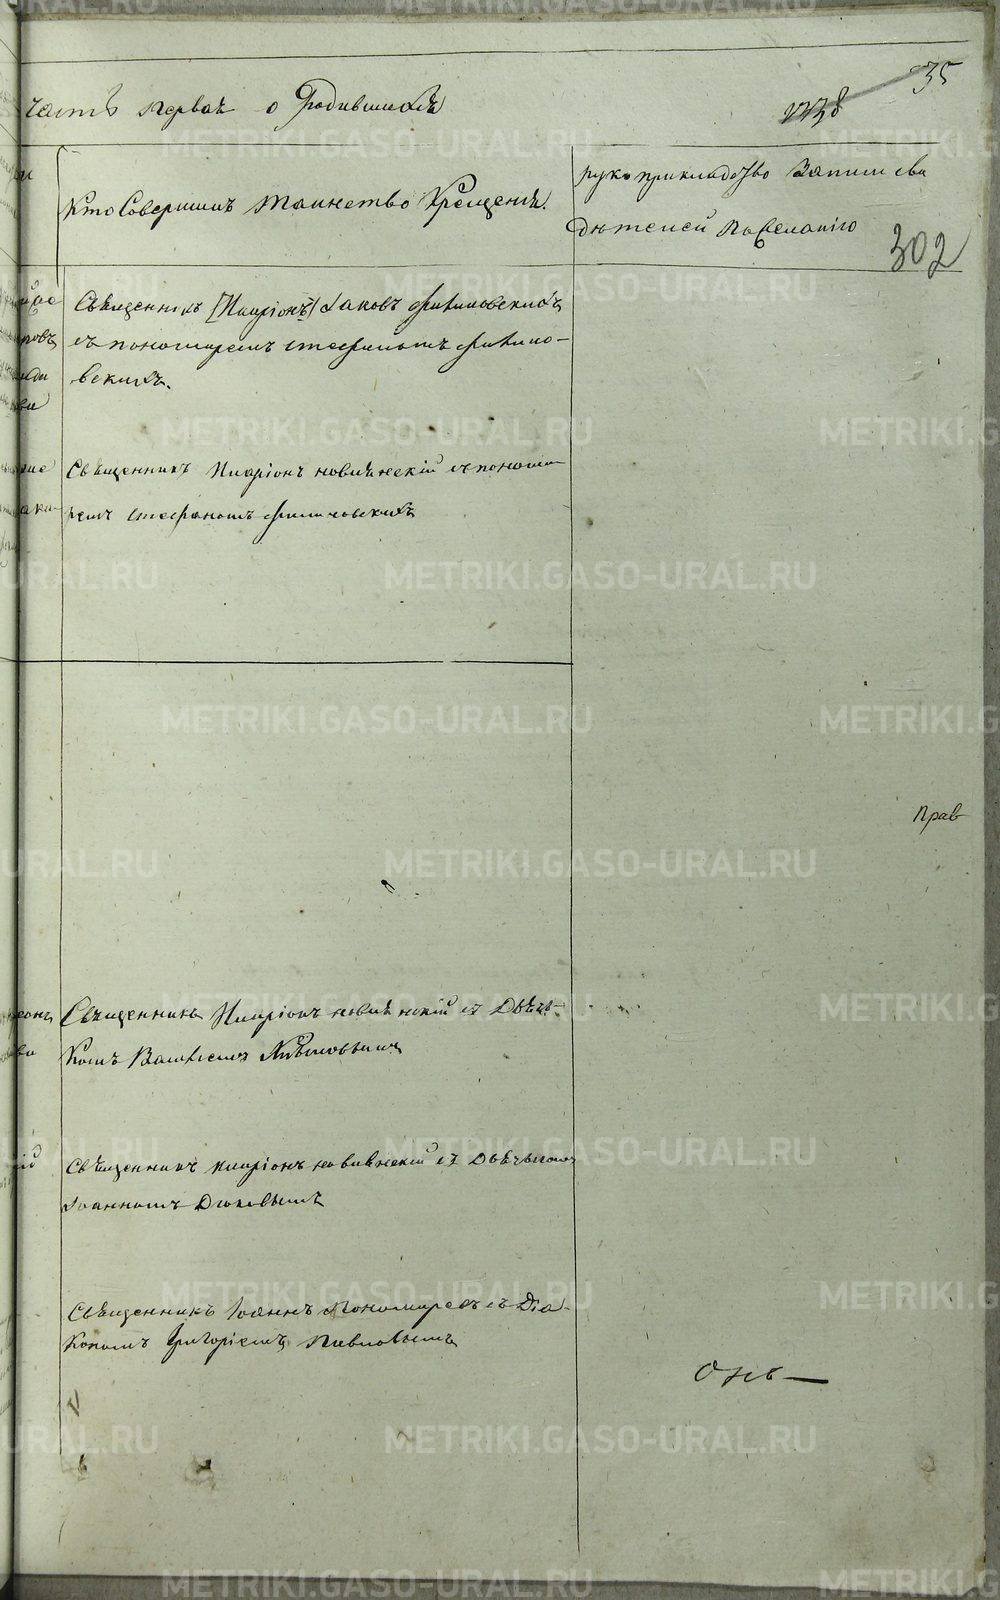 35
часть первая о Родившихся
1138
Кто Совершилъ таинство Крещенія.
рукоприкладство Записи сви
дѣтелей По желанію
302
Священникъ [Иларіонъ] Іаковъ Филиповскихъ
съ пономаремъ Стефаномъ Филипо-
вскихъ.
Священникъ Иларіонъ новинскій съ понома
ремъ Стефаномъ Филиповскихъ
Прав
Священникъ Иларіонъ новинскій съ Дьяч-
комъ
Священникъ иларіонъ новинскій съ Дьячькомъ
Іоанномъ Дюковымъ
Священникъ Іоаннъ Пономаревъ съ Діа-
кономъ Григоріемъ Павловымъ
METRIKI.GASO-URAL.RU